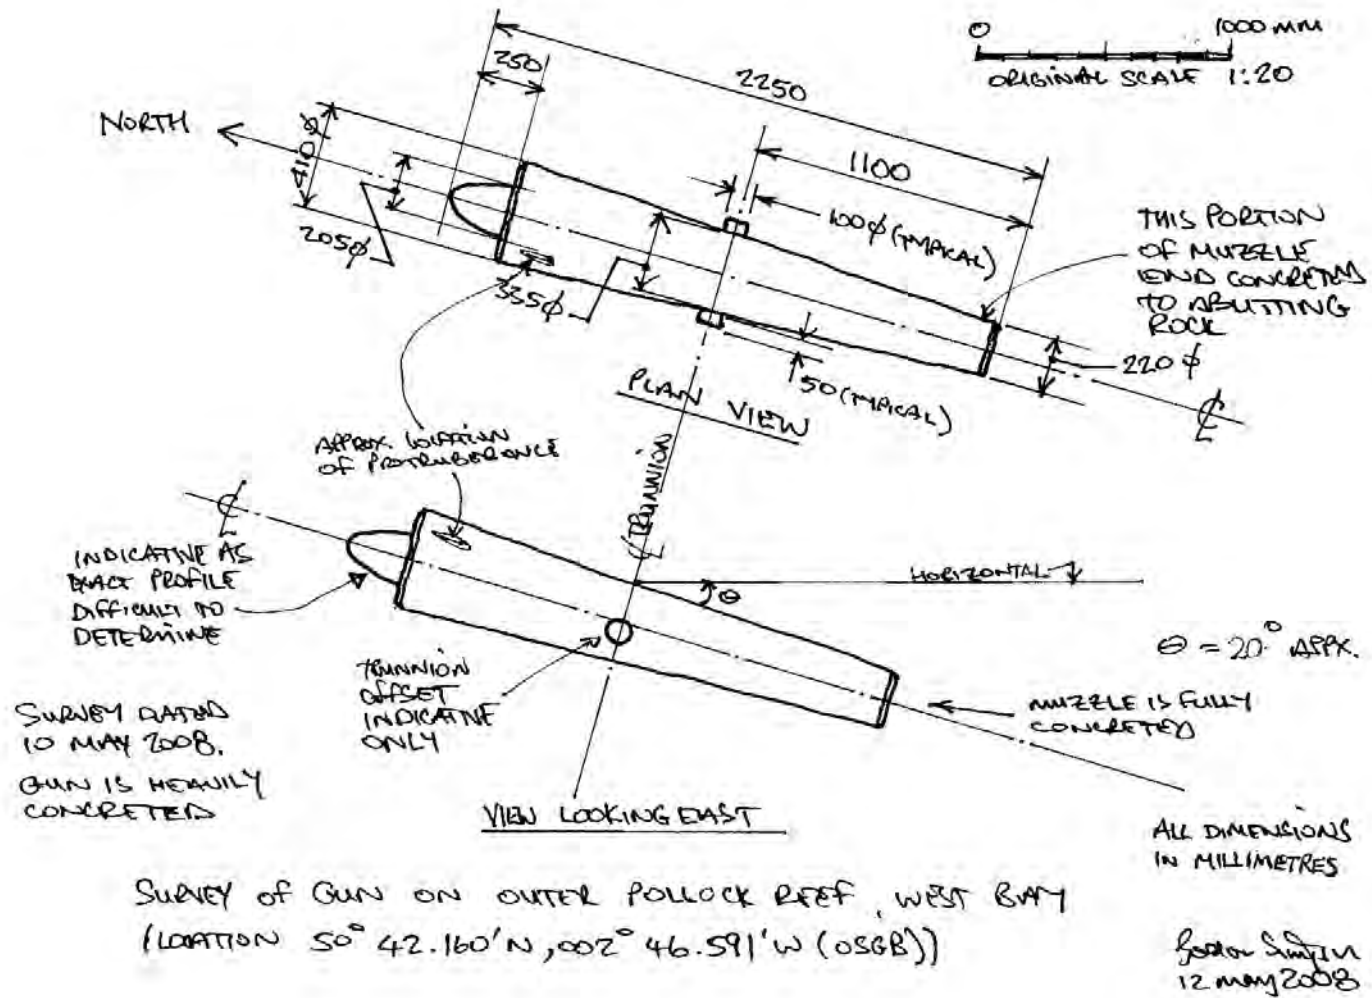 0 1000 MM
ORIGINAL SCALE 1:20
250
2250
NORTH
410 ϕ
1100
205ϕ
335ϕ
100ϕ (TYPICAL)
THIS PORTION
OF MUZZLE
END CONCRETED
TO ABUTTING
ROCK
220 ϕ
50 (TYPICAL)
PLAN VIEW
℄
APPROX. LOCATION
OF PROTRUBERANCE
℄ TRUNNION
℄
INDICATIVE AS
EXACT PROFILE
DIFFICULT TO
DETERMINE
HORIZONTAL
θ
θ = 20° APPX.
TRUNNION
OFFSET
INDICATIVE
ONLY
MUZZLE IS FULLY
CONCRETED
SURVEY DATED
10 MAY 2008.
GUN IS HEAVILY
CONCRETED
VIEW LOOKING EAST
ALL DIMENSIONS
IN MILLIMETRES
SURVEY OF GUN ON OUTER POLLOCK REEF, WEST BAY
(LOCATION 50° 42.160'N, 002° 46.591'W (OSGB))
12 MAY 2008